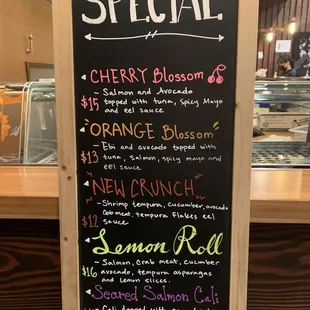 SPECIAL
CHERRY Blossom
- Salmon and Avocado
$15 topped with tuna, Spicy Mayo
and eel sauce
"ORANGE Blossom"
- Ebi and avocado topped with
$13 tuna, Salmon, spicy mayo and
eel sauce.
NEW CRUNCH
- Shrimp tempura, cucumber, avocado
Crab meat, tempura flakes eel
$12 sauce
Lemon Roll
- Salmon, Crab meat, cucumber
$16 avocado, tempura asparagus
and lemon slices.
Seared Salmon Cali